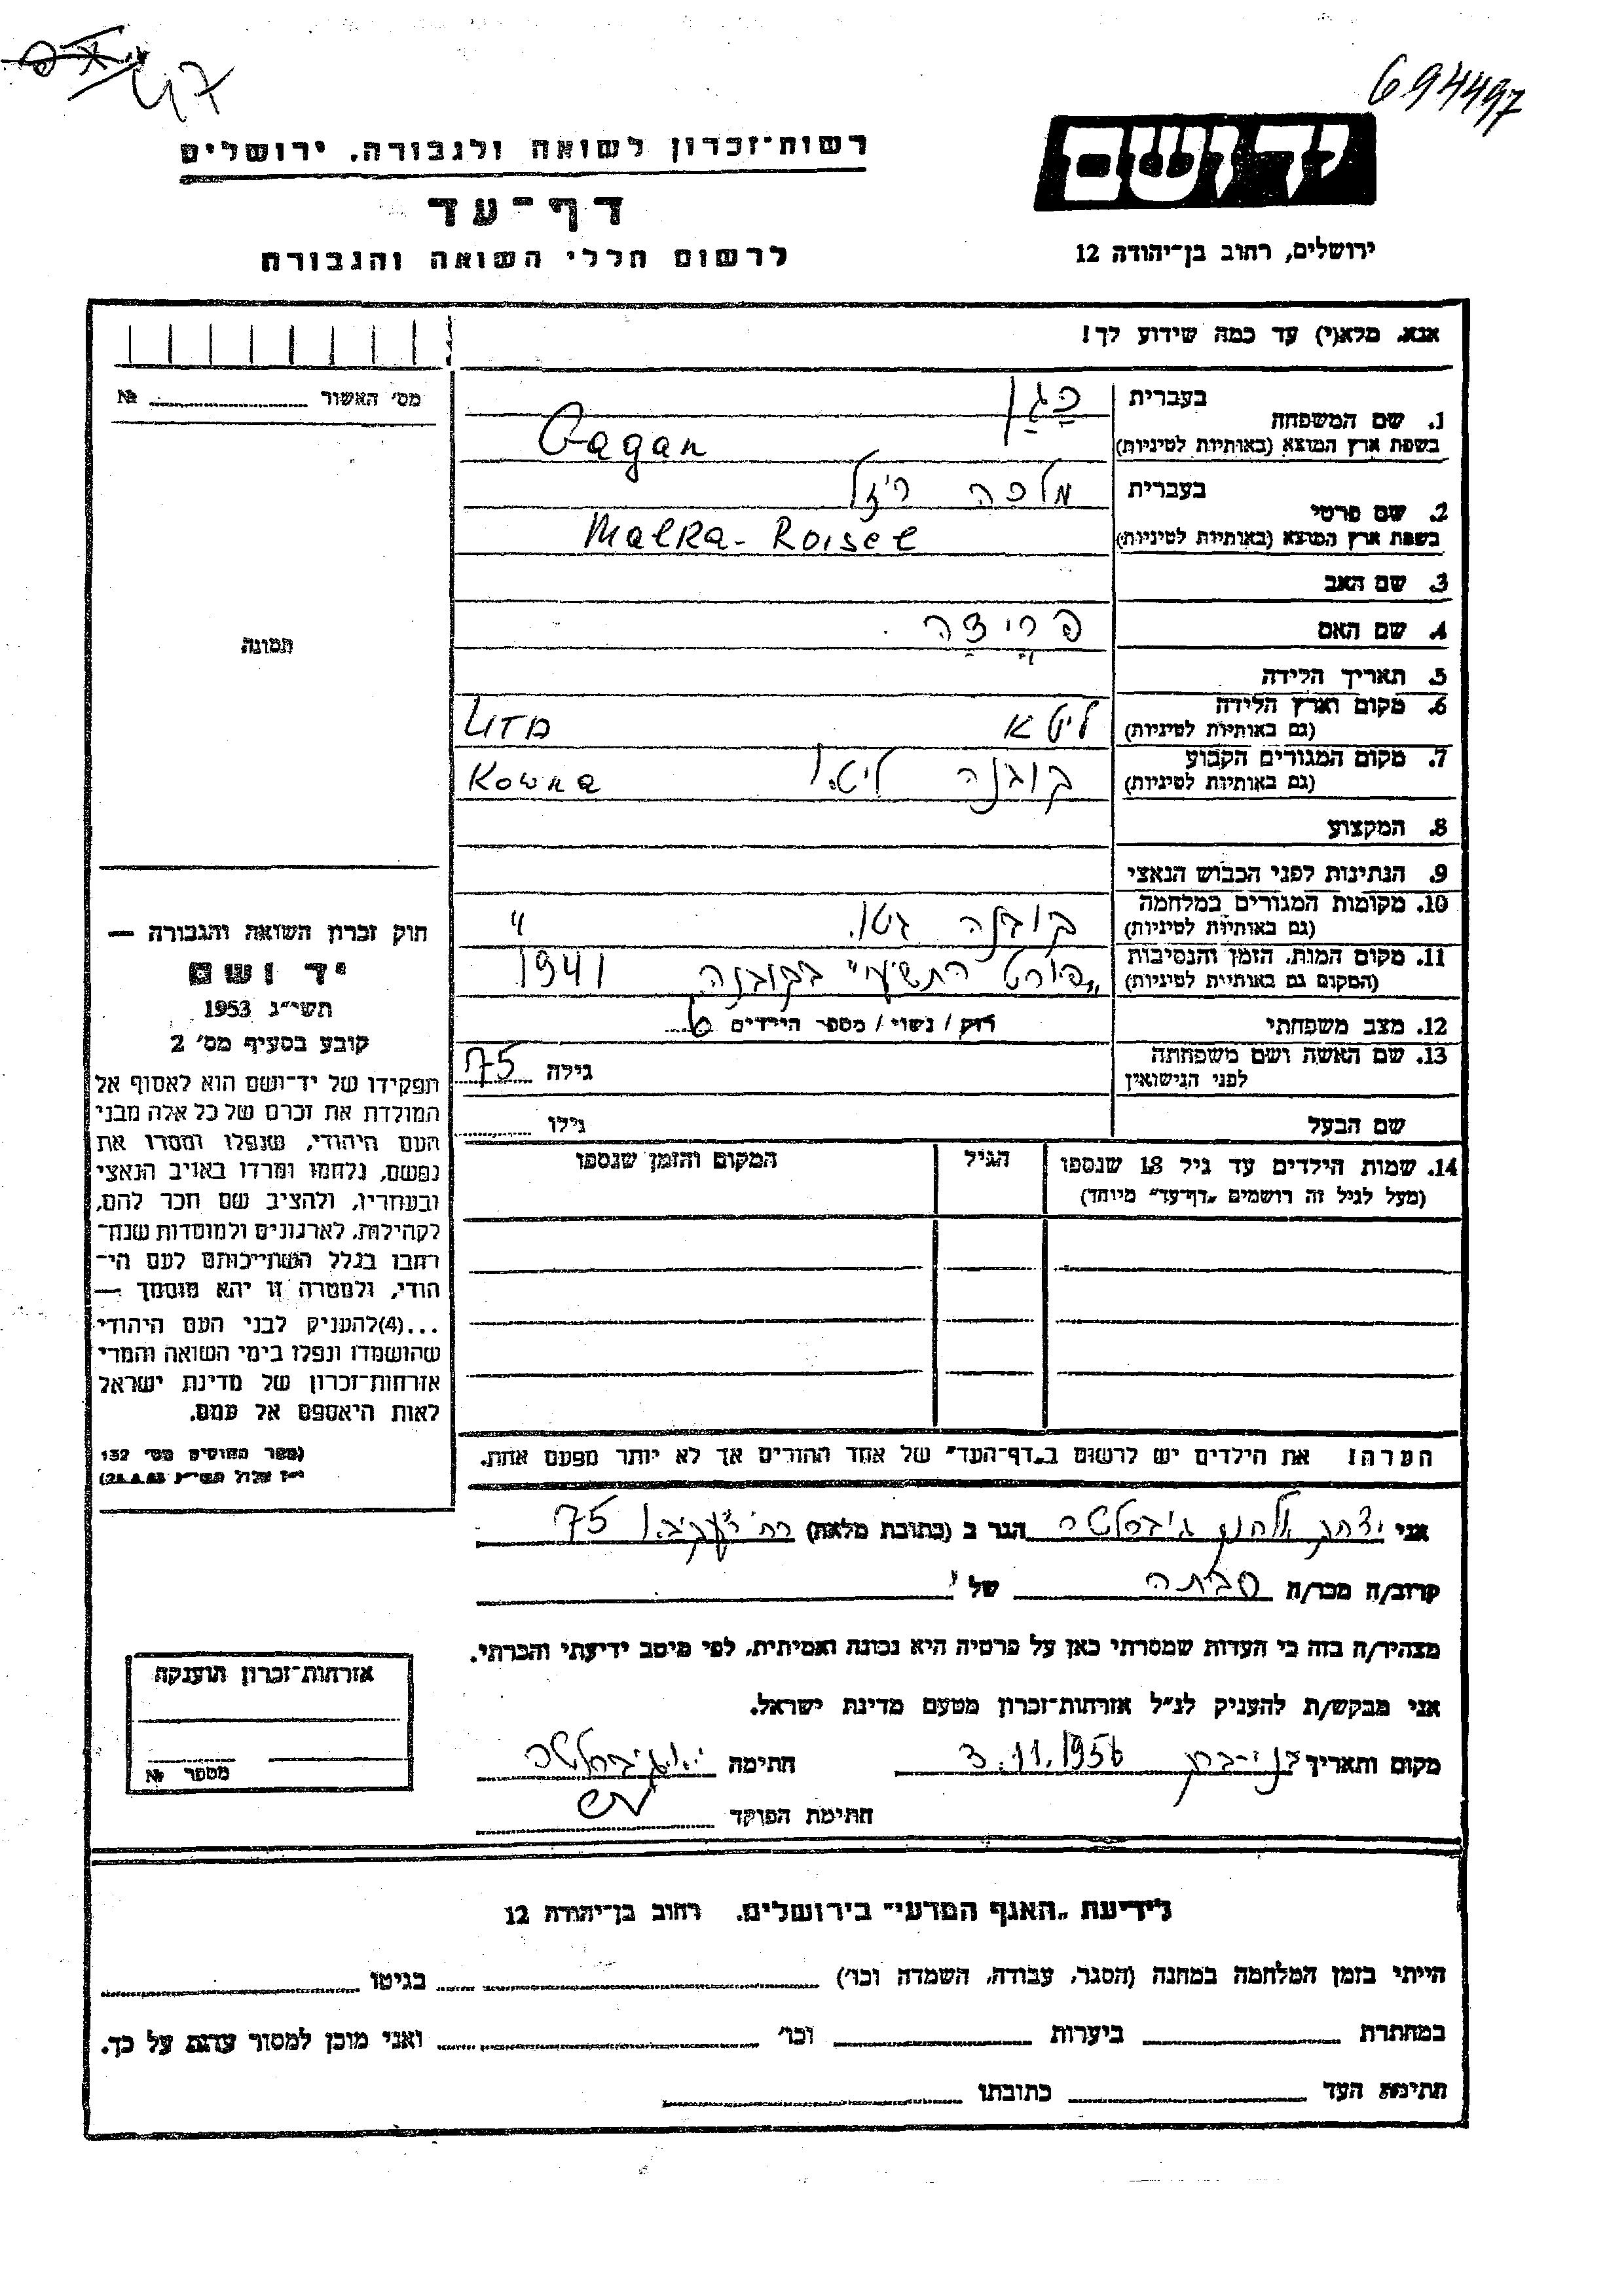 694497
רשות־זכרון לשואה ולגבורה. ירושלים
יד ושם
דף־עד
לרשום חללי השואה והגבורה
ירושלים, רחוב בן־יהודה 12
אנא. מלא(י) עד כמה שידוע לך!
מס׳ האשור № 
1. שם המשפחה
בעברית כַּגַן
בשפת ארץ המוצא (באותיות לטיניות) Cagan
2. שם פרטי
בעברית מלכה ריזל
בשפת ארץ המוצא (באותיות לטיניות) Malka - Roisel
3. שם האב
4. שם האם
5. תאריך הלידה
6. מקום וארץ הלידה ליטא
(גם באותיות לטיניות)
7. מקום המגורים הקבוע קובנה ליטא Kowna
(גם באותיות לטיניות)
8. המקצוע
9. הנתינות לפני הכבוש הנאצי
10. מקומות המגורים במלחמה קובנה גטו. "
(גם באותיות לטיניות)
11. מקום המות, הזמן והנסיבות „פורט התשיעי" בקובנה 1941
(המקום גם באותיות לטיניות)
12. מצב משפחתי רוק / נשוי / מספר הילדים 6
13. שם האשה ושם משפחתה גילה 75
לפני הנישואין
שם הבעל גילו
14. שמות הילדים עד גיל 18 שנספו הגיל המקום והזמן שנספו
(מעל לגיל זה רושמים „דף־עד" מיוחד)
הערה! את הילדים יש לרשום ב„דף־העד" של אחד ההורים אך לא יותר מפעם אחת.
תמונה
חוק זכרון השואה והגבורה —
יד ושם
תשי״ג 1953
קובע בסעיף מס׳ 2
תפקידו של יד־ושם הוא לאסוף אל
המולדת את זכרם של כל אלה מבני
העם היהודי, שנפלו ומסרו את
נפשם, נלחמו ומרדו באויב הנאצי
ובעוזריו, ולהציב שם וזכר להם,
לקהילות, לארגונים ולמוסדות שנח־
רבו בגלל השתייכותם לעם הי־
הודי, ולמטרה זו יהא מוסמך —
...(4)להעניק לבני העם היהודי
שהושמדו ונפלו בימי השואה והמרי
אזרחות־זכרון של מדינת ישראל
לאות היאספם אל עמם.
(ספר החוקים מס׳ 132
י״ז אלול תשי״ג 28.8.53)
אני יצחק אלחנן גיברלטר הגר ב (כתובת מלאה) רח׳ ר׳ עקיבא 75
קרוב/ה מכר/ה סבתה של
מצהיר/ה בזה כי העדות שמסרתי כאן על פרטיה היא נכונה ואמיתית, לפי מיטב ידיעתי והכרתי.
אני מבקש/ת להעניק לנ״ל אזרחות־זכרון מטעם מדינת ישראל.
מקום ותאריך בני-ברק 3.11.1956 חתימה י.א. גיברלטר
חתימת הפוקד
אזרחות־זכרון הוענקה
מספר №
לידיעת „האגף המדעי" בירושלים. רחוב בן־יהודה 12
הייתי בזמן המלחמה במחנה (הסגר, עבודה, השמדה וכו׳) בגיטו
במחתרת ביערות וכו׳ ואני מוכן למסור עדות על כך.
חתימת העד כתובתו